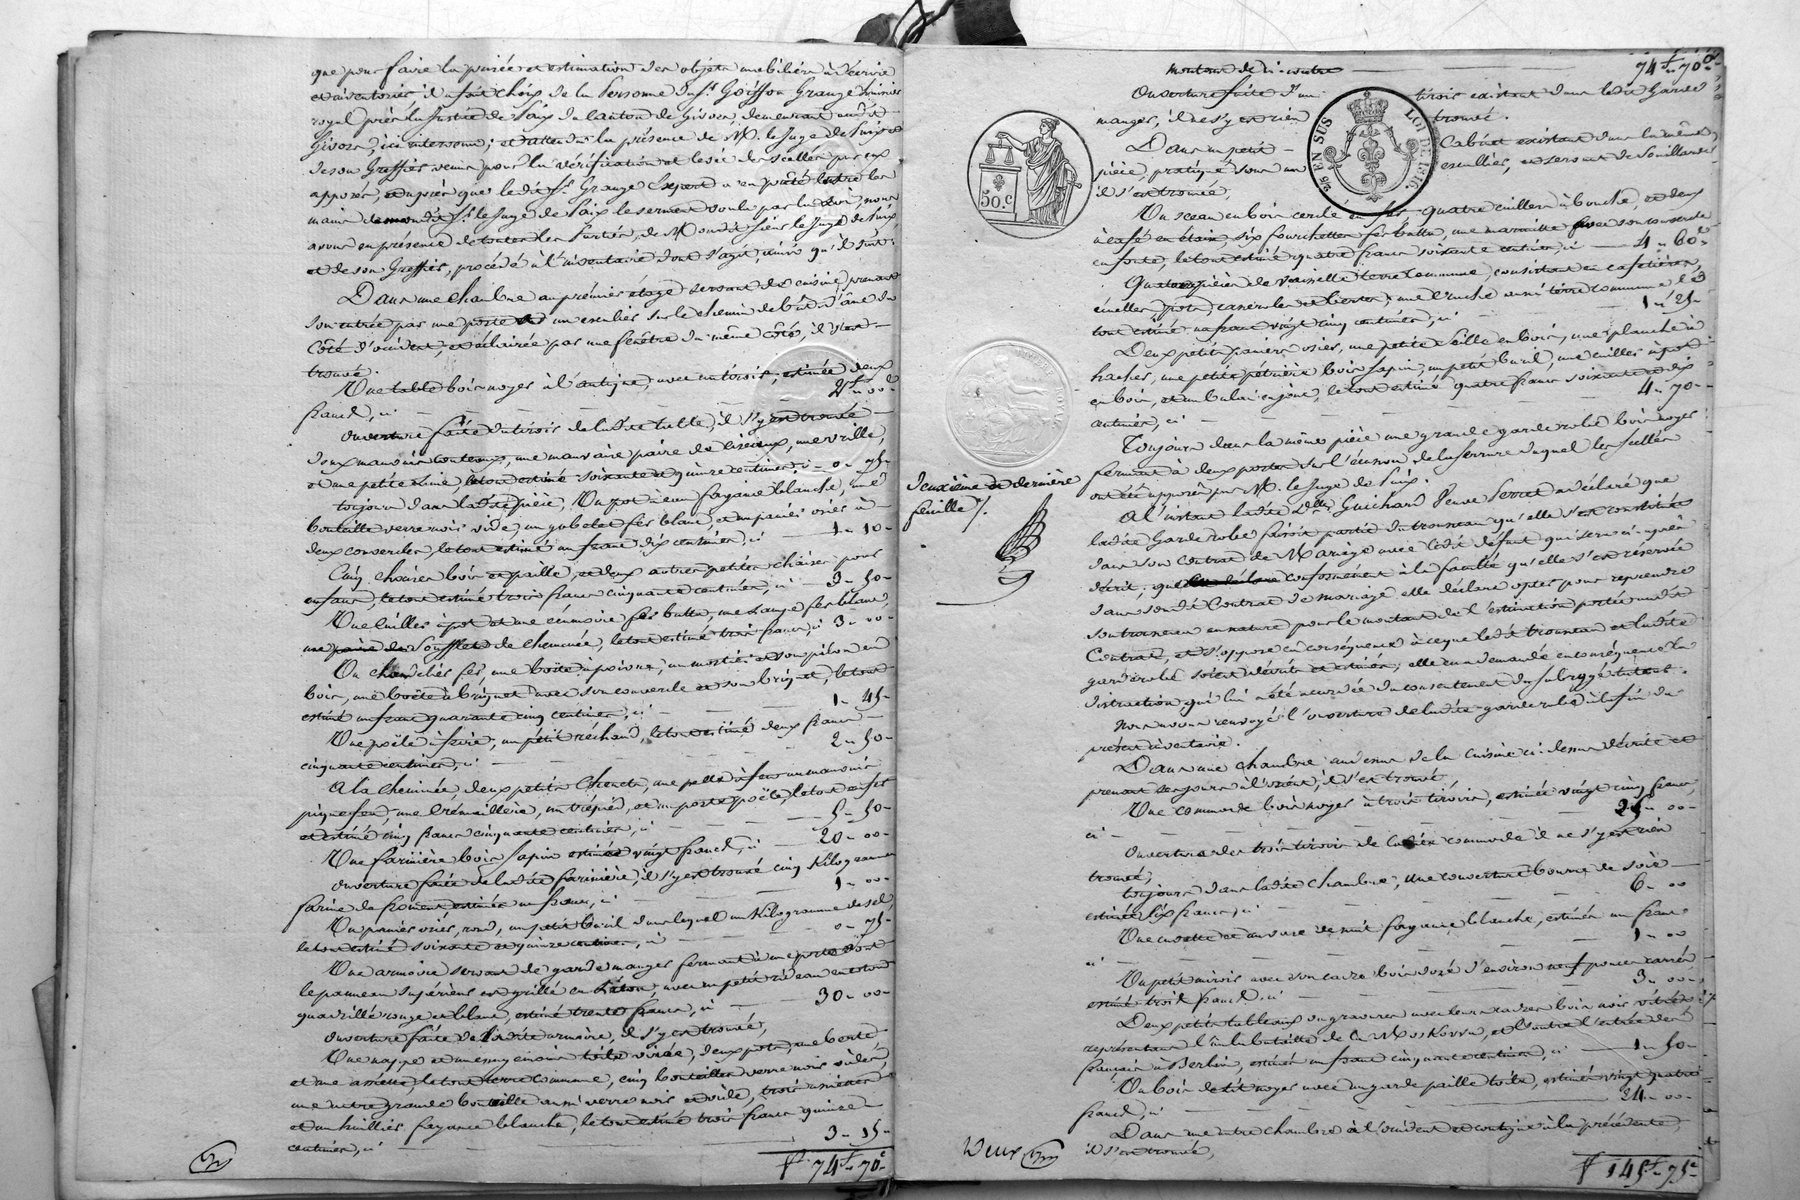 que pour faire la prisée et estimation des objets mobiliers à décrire
et inventorier il a fait choix de la Personne du Sr. Goiffon Grange huissier
royal près la Justice de Paix du Canton de Givors demeurant audit
Givors, ici intervenu; et attendu la présence de M. le Juge de Paix et
de son Greffier venus pour la vérification et levée des scellés par eux
apposés, et après que ledit Sr. Grange Expert a eu prêté entre les
mains de mondit Sr. le Juge de Paix le serment voulu par la Loi, nous
avons en présence de toutes les Parties, de M. ondit sieur le Juge de Paix
et de son Greffier, procédé à l'inventaire dont s'agit, ainsi qu'il suit:
Dans une chambre au premier étage servant de cuisine, prenant
son entrée par une porte et un escalier sur le chemin de
côté d'occident, et éclairée par une fenêtre du même côté, il s'est
trouvé.
Une table bois noyer à l'antique, avec un tiroir, estimée deux
francs, ci 2f. 00c
Ouverture faite du tiroir de ladite table, il s'y est trouvé
deux mauvais couteaux, une mauvaise paire de ciseaux, une vrille,
et une petite lime, le tout estimé soixante et quinze centimes, ci 0. 75.
toujours dans ladite pièce, Un pot à eau fayance blanche, une
bouteille verre noir vide, un gobelet fer blanc, et un panier osier à
deux couvercles, le tout estimé un franc dix centimes, ci 1. 10.
Cinq chaises bois et paille, et deux autres petites chaises pour
enfans, le tout estimé trois francs cinquante centimes, ci 3. 50.
Une cuiller à pot et une écumoire fer battu, une Lampe fer blanc,
une paire de soufflets de cheminée, le tout estimé trois francs, ci 3. 00.
Un chandelier fer, une boëte à poivre, un mortier et son pilon en
bois, une boëte à briquet avec son couvercle et son briquet, le tout
estimé un franc quarante cinq centimes, ci 1. 45.
Une poële à frire, un petit réchaud, le tout estimé deux francs
cinquante centimes, ci 2. 50.
A la cheminée, deux petits Chenets, une pelle à feu un mauvais
pique feu, une crémaillère, un trépied, et un porte poële, le tout en fer
et estimé cinq francs cinquante centimes, ci 5. 50.
Une farinière bois sapin estimée vingt francs, ci 20. 00.
Ouverture faite de ladite farinière, il s'y est trouvé cinq kilogrammes
farine de froment estimés un franc, ci 1. 00.
Un panier osier, rond, un petit baril dans lequel un kilogramme de sel,
le tout estimé soixante et quinze centimes, ci 0. 75.
Une armoire servant de garde manger fermant à une porte dont
le panneau supérieur est grillé en laiton, avec un petit rideau en coton
quadrillé rouge et blanc, estimé trente francs, ci 30. 00.
Ouverture faite de ladite armoire, il s'y est trouvé,
Une nappe et un essuye main toile cirée, deux pots, une berte,
et une assiette, le tout terre commune, cinq bouteilles verre noir vides,
une autre grande bouteille aussi verre noir et vide, trois assiettes
et un huilier fayance blanche, le tout estimé trois francs quinze
centimes, ci 3. 15.
74f. 70c
montant de ci-contre 74f. 70c
Ouverture faite d'un tiroir existant dans ledit Garde
manger, il ne s'y est rien trouvé.
Dans un petit Cabinet existant dans la même
pièce, pratiqué sous un escallier, et servant de souillarde
il s'est trouvé,
50.c
25 EN SUS
LOI DE 1816
Un sceau en bois cerclé en fer, quatre cuillers à bouche, et deux
à café en étain, six fourchettes fer battu, une marmite avec son couvercle
en fonte, le tout estimé quatre francs soixante centimes, ci 4. 60c
Quatorze pièces de vaisselle terre commune, consistant en cafetières,
écuelles, pots, casseroles et bertes, une cruche aussi terre commune, le
tout estimé un franc vingt cinq centimes, ci 1. 25.
Deux petits paniers osier, une petite seille en bois, une planche à
hacher, une petite pétrière bois sapin, un petit baril, une cuiller à pot
en bois, et un balai en jonc, le tout estimé quatre francs soixante et dix
centimes, ci 4. 70.
Toujours dans la même pièce une grande garderobe bois noyer
fermant à deux portes sur l'écusson de la serrure duquel les scellés
ont été apposés par M. le Juge de Paix.
Deuxième et dernière
feuille /.
A l'instant ladite Dlle Guichard Veuve Serret a déclaré que
ladite Garderobe faisoit partie du trousseau qu'elle s'est constitué
dans son Contrat de Mariage avec ledit défunt
décrit; que conformément à la faculté qu'elle s'est réservée
dans son dit Contrat de mariage elle déclare opter pour reprendre
son trousseau en nature pour le montant de l'estimation portée audit
Contrat, et s'oppose en conséquence à ce que ledit trousseau et ladite
garderobe soient décrits et estimés; elle en a demandé en conséquence la
distraction qui lui a été accordée du consentement du subrogé tuteur.
Nous avons renvoyé l'ouverture de ladite garderobe à la fin du
présent inventaire.
Dans une chambre au dessus de la cuisine ci-dessus décrite et
prenant ses jours à l'orient, il s'est trouvé,
Une commode bois noyer à trois tiroirs, estimée vingt cinq francs,
ci 25. 00.
Ouverture des trois tiroirs de ladite commode il ne s'y est rien
trouvé,
toujours dans ladite chambre, Une couverture bourre de soie
estimée six francs, ci 6. 00
Une cuvette et un vase de nuit fayance blanche, estimés un franc
ci 1. 00
Un petit miroir avec son cadre bois doré d'environ neuf pouces carrés
estimé trois francs, ci 3. 00.
Deux petits tableaux ou gravures avec leurs cadres bois noir vitrés
représentant l'un la bataille de la Moskowa, et l'autre l'entrée des
français à Berlin, estimés un franc cinquante centimes, ci 1. 50.
Un bois de lit noyer avec un garde paille toile, estimé vingt quatre
francs, ci 24. 00.
Dans une autre chambre à l'occident et contigue à la précédente
il s'est trouvé,
Deux
145f. 75c